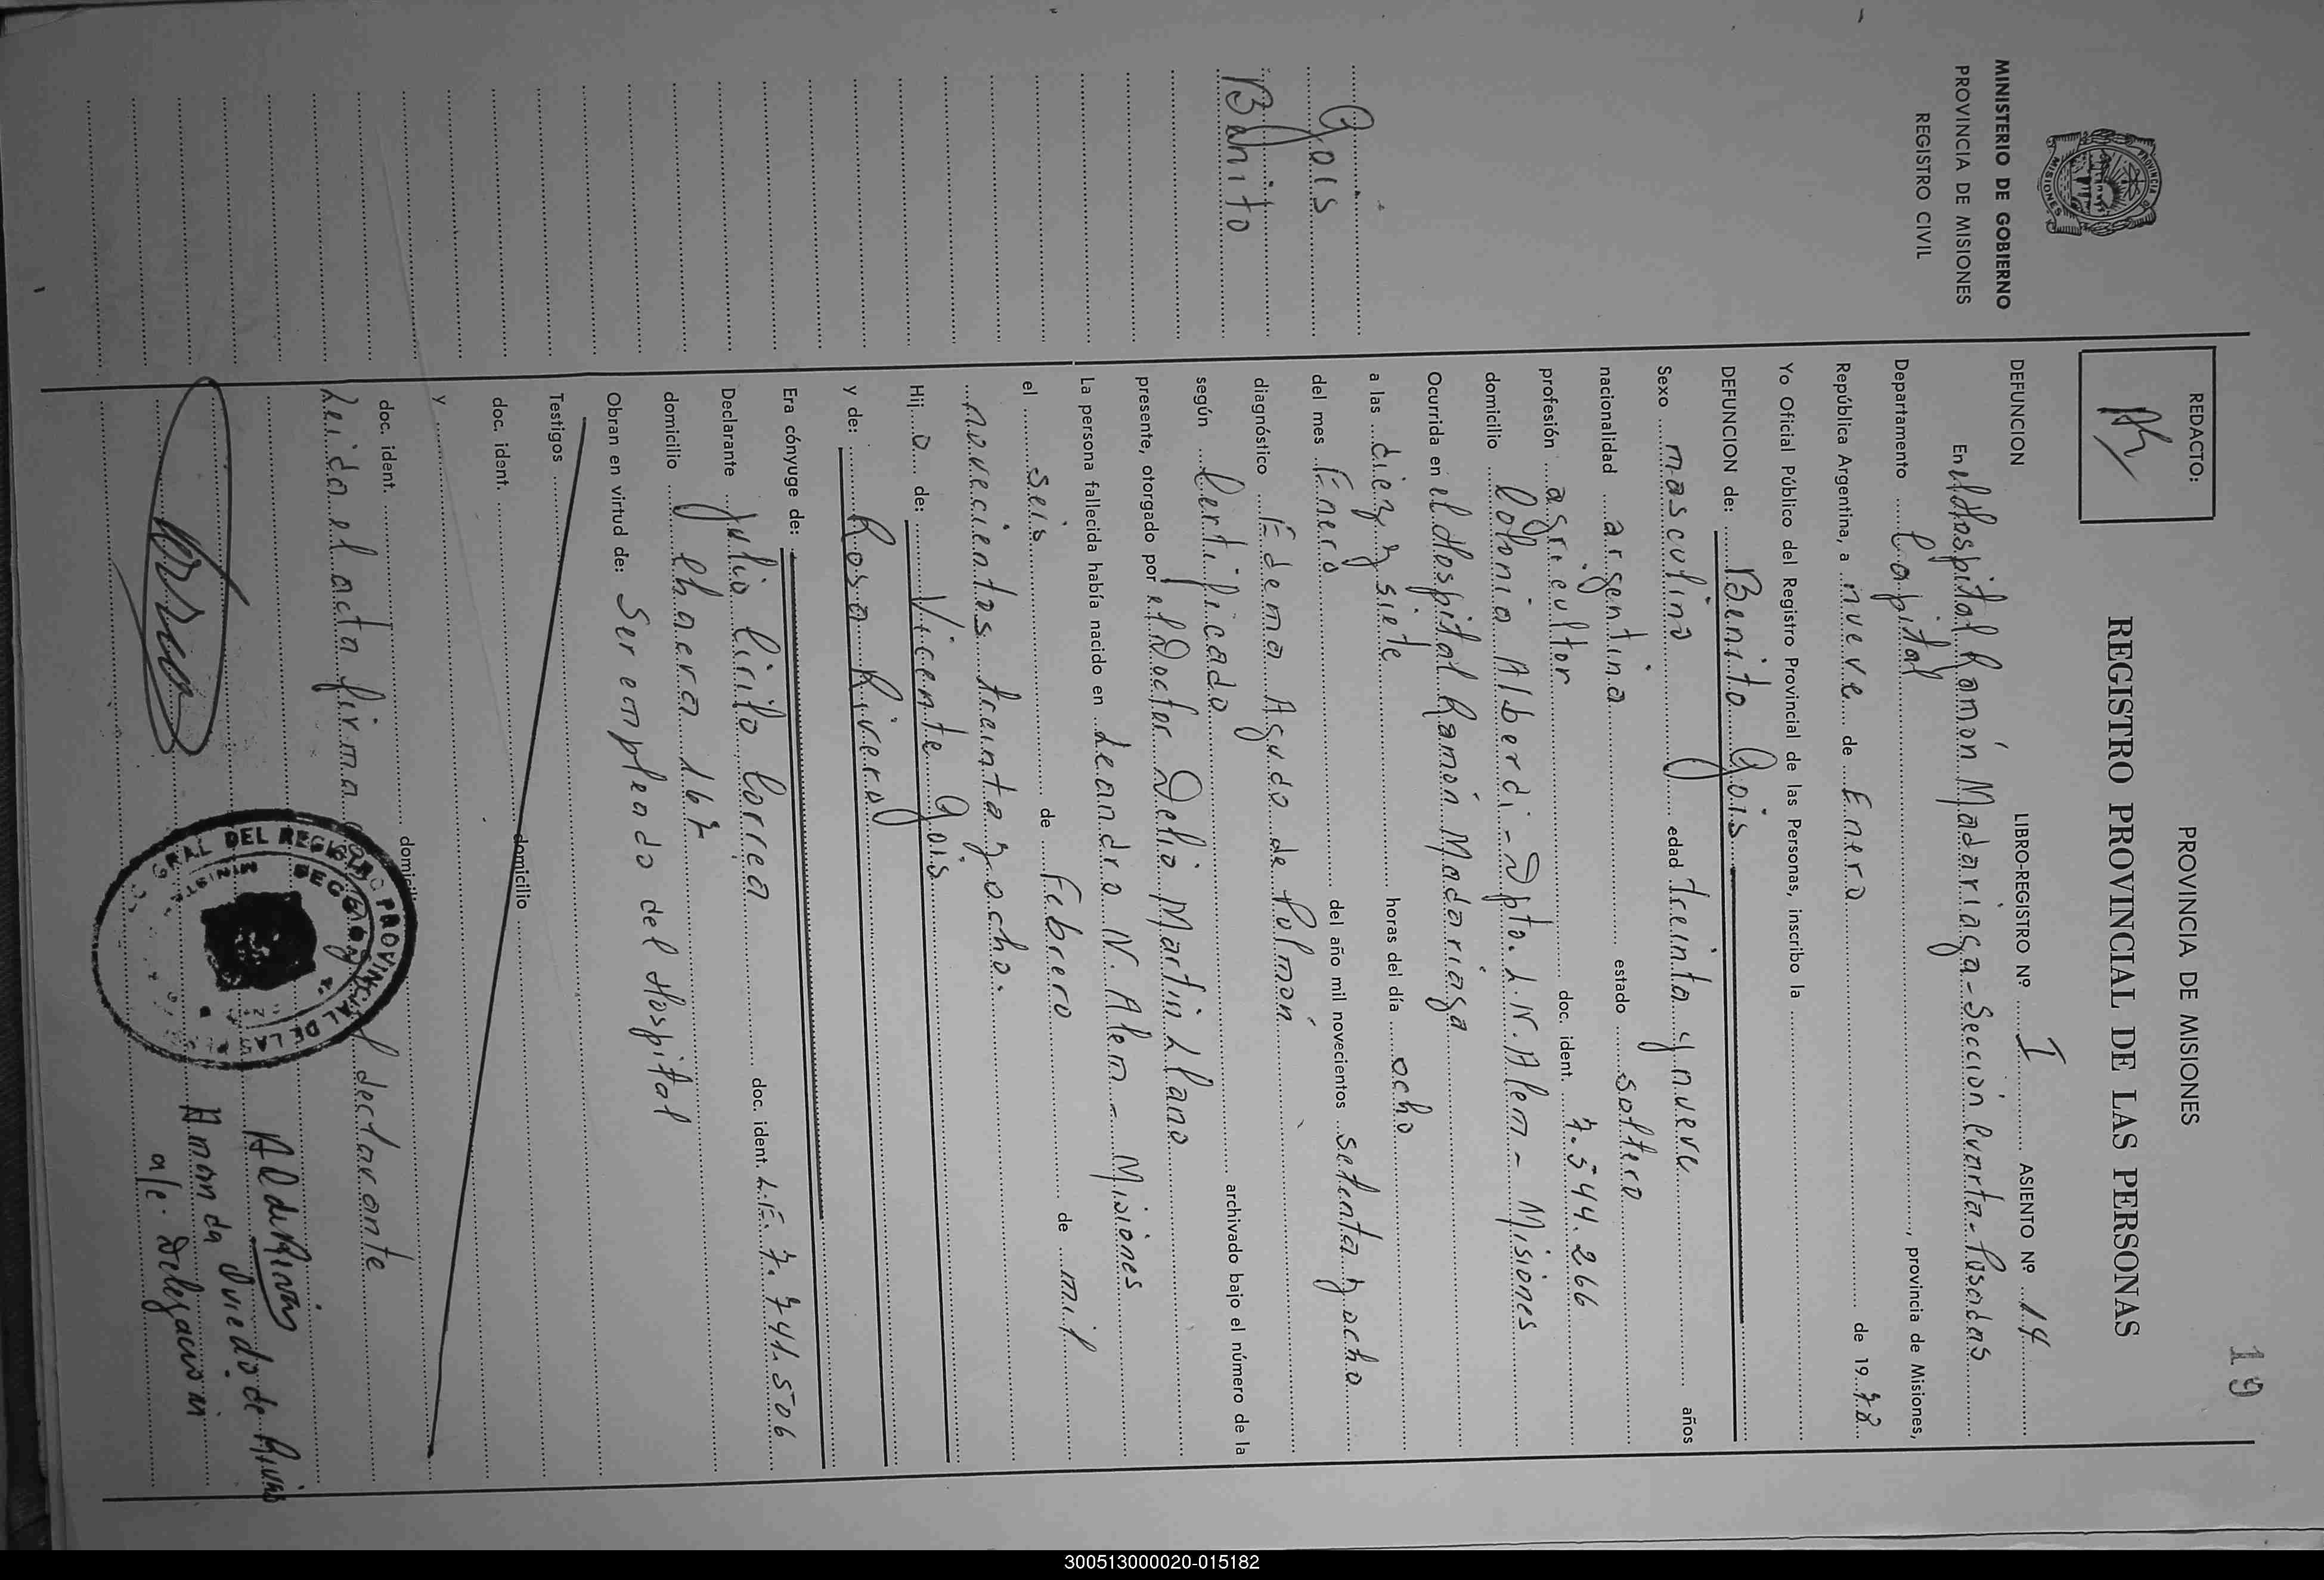 19
MINISTERIO DE GOBIERNO
PROVINCIA DE MISIONES
REGISTRO CIVIL
Gois
Benito
PROVINCIA DE MISIONES
REDACTO:
REGISTRO PROVINCIAL DE LAS PERSONAS
DEFUNCION LIBRO-REGISTRO Nº I ASIENTO Nº 14
En el Hospital Ramón Madariaga - Sección Cuarta - Posadas
Departamento Capital, provincia de Misiones,
República Argentina, a nueve de Enero de 1978
Yo Oficial Público del Registro Provincial de las Personas, inscribo la
DEFUNCION de: Benito Gois
Sexo masculino edad treinta y nueve años
nacionalidad argentina estado soltero
profesión agricultor doc. ident. 7.544.266
domicilio Colonia Alberdi - Dpto. L. N. Alem - Misiones
Ocurrida en el Hospital Ramón Madariaga
a las diez y siete horas del día ocho
del mes Enero del año mil novecientos setenta y ocho
diagnóstico Edema Agudo de Pulmón
según Certificado archivado bajo el número de la
presente, otorgado por el Doctor Delio Martin Llano
La persona fallecida había nacido en Leandro N. Alem - Misiones
el seis de Febrero de mil
novecientos treinta y ocho.
Hijo de: Vicente Gois
y de: Rosa Rivero
Era cónyuge de:
Declarante Julio Cirilo Correa doc. ident. L.E. 7.741.506
domicilio Chacra 167
Obran en virtud de: Ser empleado del Hospital
Testigos
doc. ident. domicilio
y
doc. ident. domicilio
Leida el acta firma declarante
Amanda Oviedo de Rivas
a/c. Delegacion
300513000020-015182